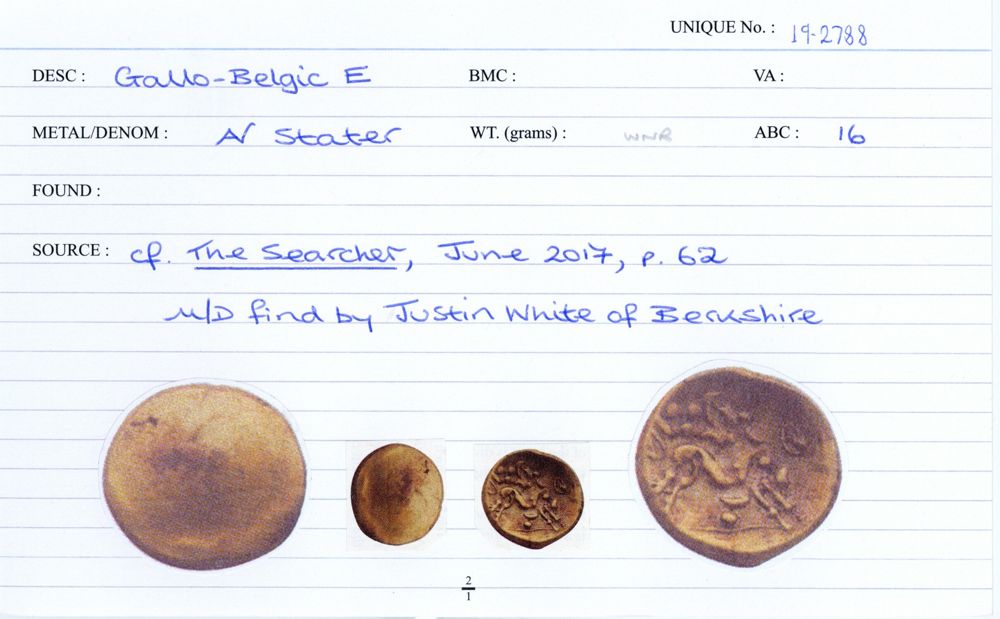 UNIQUE No. : 19-2788
DESC : Gallo-Belgic E BMC : VA :
METAL/DENOM : AV Stater WT. (grams) : WNR ABC : 16
FOUND :
SOURCE : cf. The Searcher, June 2017, p. 62
M/D find by Justin White of Berkshire
2
1